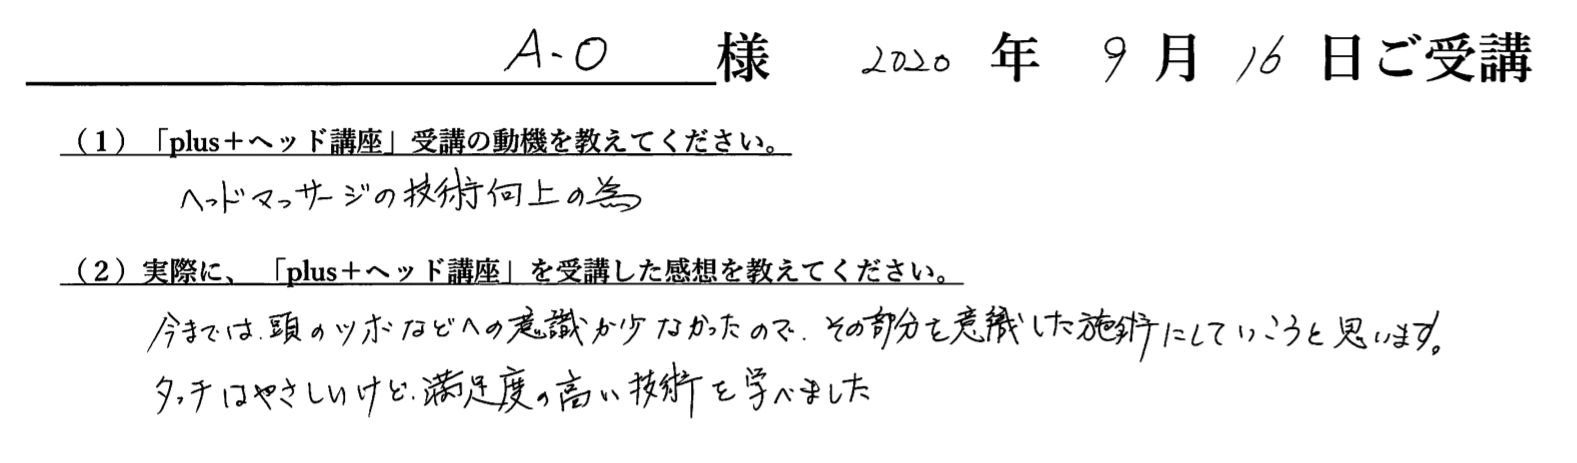 A-O 様 2020 年 9 月 16 日ご受講
（1）「plus＋ヘッド講座」受講の動機を教えてください。
ヘッドマッサージの技術向上の為
（2）実際に、「plus＋ヘッド講座」を受講した感想を教えてください。
今までは、頭のツボなどへの意識が少なかったので、その部分を意識した施術にしていこうと思います。
タッチはやさしいけど、満足度の高い技術を学べました